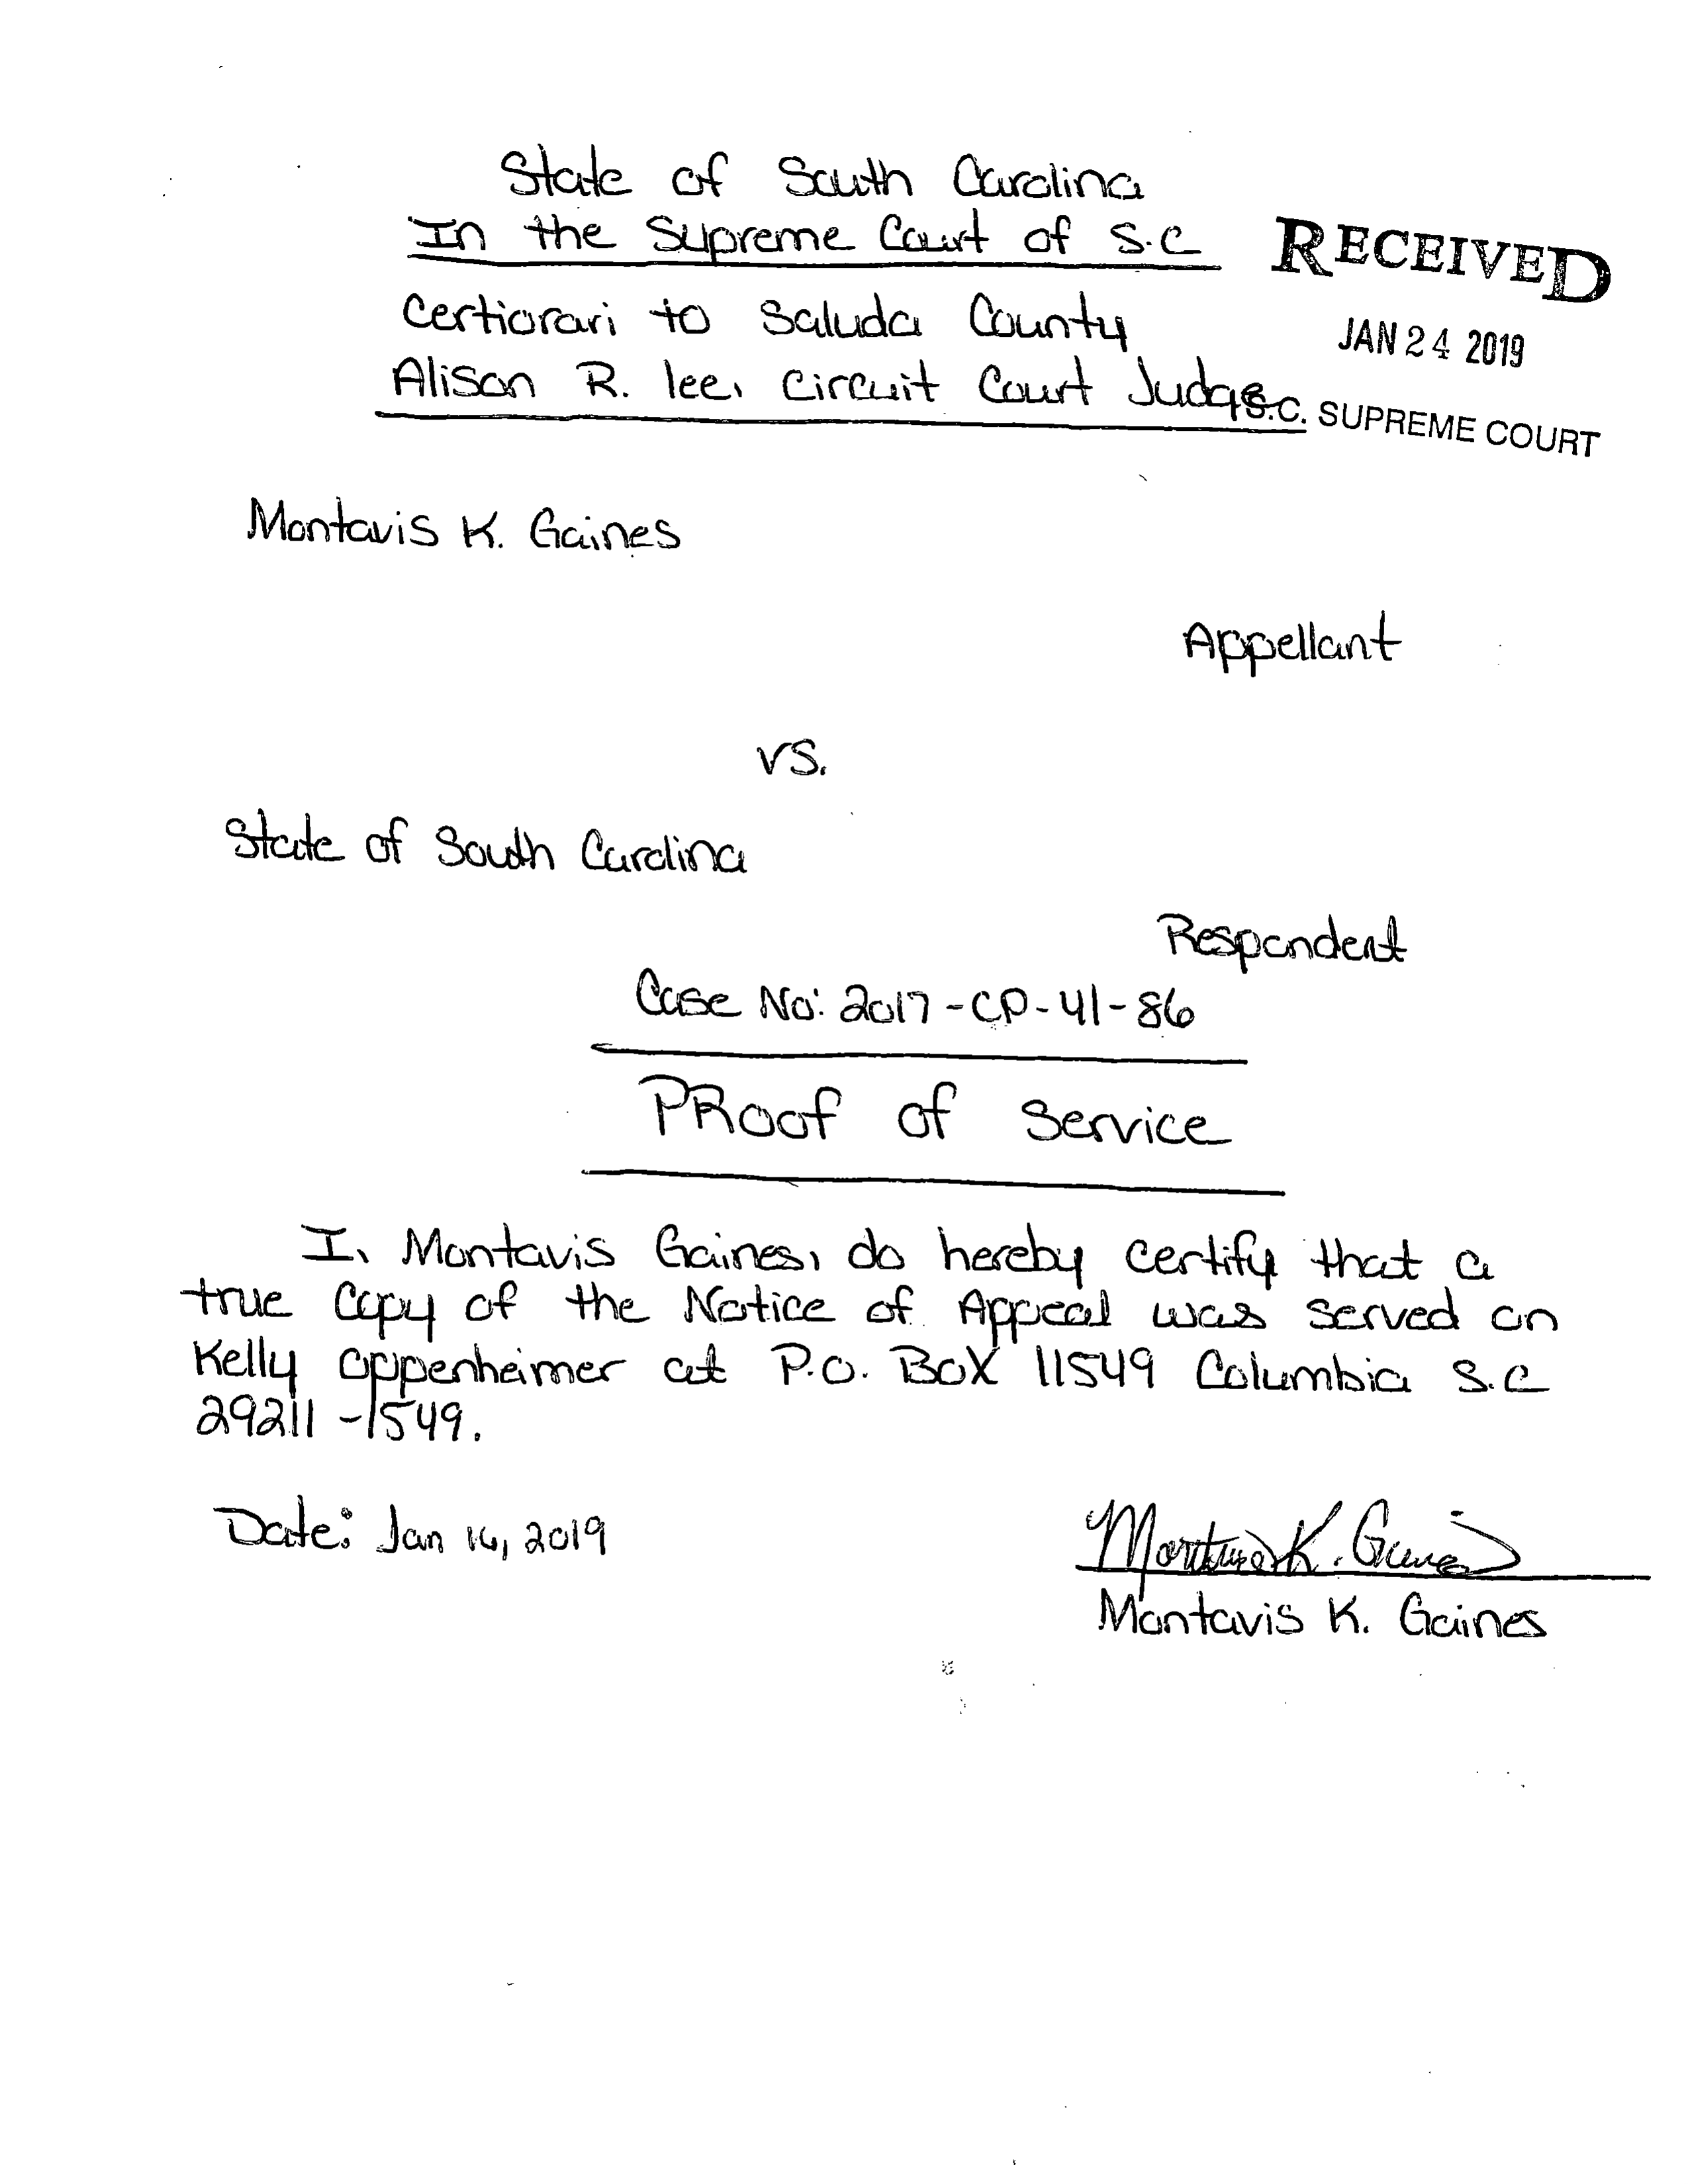 State of South Carolina
In the Supreme Court of S.C
RECEIVED
Certiorari to Saluda County
JAN 24 2019
Alison R. lee, Circuit Court Judge
S.C. SUPREME COURT
Montavis K. Gaines
Appellant
vs.
State of South Carolina
Respondent
Case No: 2017-CP-41-86
PRoof of Service
I, Montavis Gaines, do hereby certify that a
true Copy of the Notice of Appeal was served on
Kelly oppenheimer at P.O. BoX 11549 Columbia S.C
29211-1549.
Date: Jan 16, 2019
Montavis K. Gaines
Montavis K. Gaines